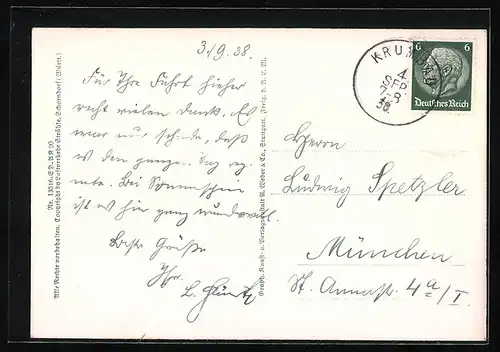 3./9. 38.
Für Ihre Fahrt hieher
recht vielen Dank. Es
war nur schade, daß
es den ganzen Tag reg-
nete. Bei Sonnenschein
ist es hier ganz wundervoll.
Beste Grüße
Ihr
L.
Nr. 13516.
Alle Rechte vorbehalten. Copyright by Luftverkehr Strähle, Schorndorf (Württ.)
Graph. Kunst- u. Verlagsanstalt R. Weber & Co., Stuttgart.
KRUM
4
SEP.
38.
6 6
Deutsches Reich
Herrn
Ludwig Spetzler
München
St. Annastr. 4a/I.